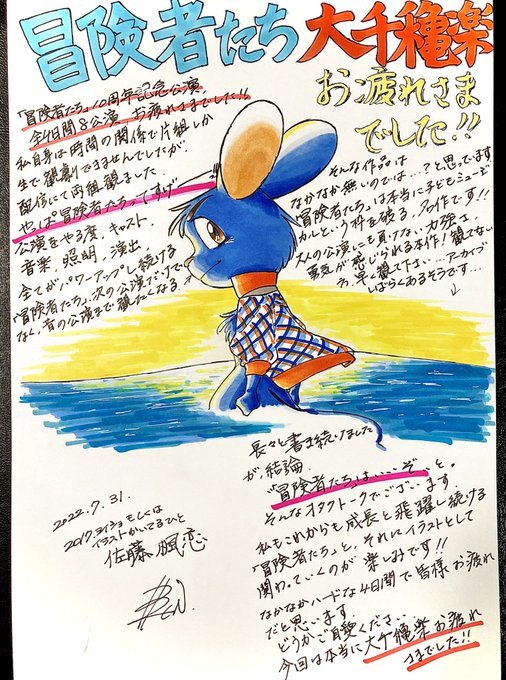 冒険者たち 大千穐楽
お疲れさま
でした!!
「冒険者たち」10周年記念公演
全4日間8公演 お疲れさまでした!!
私自身は時間の関係で片組しか
生で観劇できませんでしたが
配信にて両組観ました。
やっぱ冒険者たちってすげー
公演をやる度、キャスト
音楽、照明、演出
全てがパワーアップし続ける
「冒険者たち」、次の公演だけで
なく、昔の公演まで観たくなる
そんな作品は
なかなか無いのでは…?と思っています
「冒険者たち」は本当に子どもミュージ
カルという枠を破る、名作です!!
大人の公演にも負けない力強さ、
勇気が感じられる本作!観てない
方、早く観て下さい…アーカイブ
しばらくあるそうです…
↓
長々と書き続けました
が、結論
"冒険者たち"はいいぞ と。
そんなオタクトークでございます。
私もこれからも成長と飛躍し続ける
「冒険者たち」と、それにイラストとして
関わっていくのが楽しみです!!
なかなかハードな4日間で皆様お疲れ
だと思います。
どうかご自愛ください…
今回は本当に大千穐楽お疲れ
さまでした!!
2022.7.31.
2017ヨイショもしくは
イラストかいてるひと
佐藤楓恋